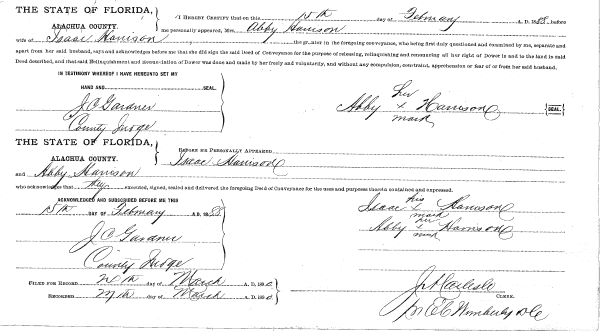 THE STATE OF FLORIDA,
ALACHUA COUNTY.
I HEREBY CERTIFY that on this 15th day of February A. D. 18 before
me personally appeared, Mrs. Abby Harrison
wife of Isaac Harrison the grantor in the foregoing conveyance, who being first duly questioned and examined by me, separate and
apart from her said husband, says and acknowledges before me that she did sign the said deed of Conveyance for the purpose of releasing, relinquishing and renouncing all her right of Dower in and to the land in said
Deed described, and that said Relinquishment and Renunciation of Dower was done and made by her freely and voluntarily, and without any compulsion, constraint, apprehension or fear of or from her said husband.
IN TESTIMONY WHEREOF I HAVE HEREUNTO SET MY
HAND AND SEAL.
J. C. Gardner
County Judge
her
Abby x Harrison SEAL.
mark
THE STATE OF FLORIDA,
ALACHUA COUNTY.
BEFORE ME PERSONALLY APPEARED
Isaac Harrison
and Abby Harrison
who acknowledges that they executed, signed, sealed and delivered the foregoing Deed of Conveyance for the uses and purposes therein contained and expressed.
ACKNOWLEDGED AND SUBSCRIBED BEFORE ME THIS
15th DAY OF February A. D. 18
J. C. Gardner
County Judge
his
Isaac x Harrison
mark
her
Abby x Harrison
mark
FILED FOR RECORD day of March A. D. 18
RECORDED 27th day of March A. D. 18
CLERK.
E C Wimberly D C